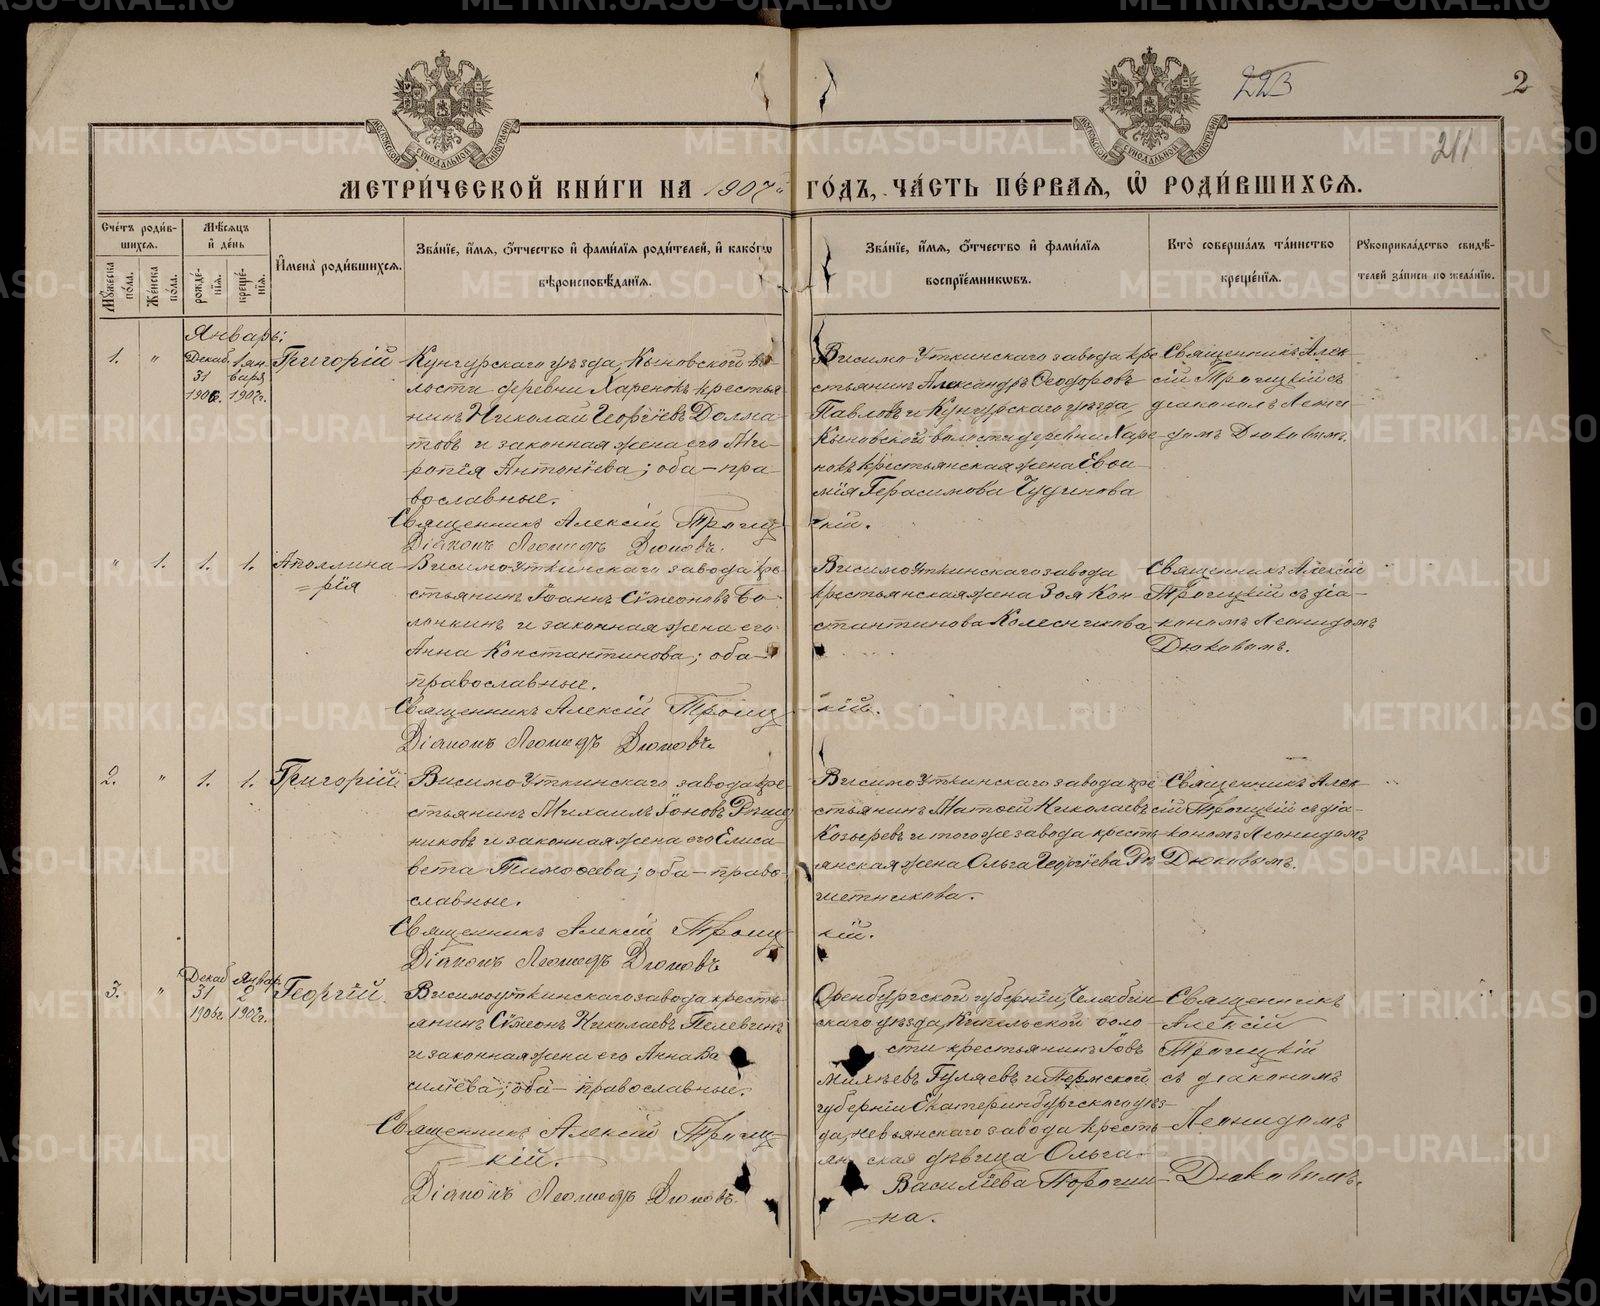 METRIKI.GASO-URAL.RU
223
2
211
МОСКОВСКОЙ СѴНОДАЛЬНОЙ ТИПОГРАФІИ
МЕТРИ́ЧЕСКОЙ КНИ́ГИ НА 1907й ГО́ДЪ, ЧА́СТЬ ПЕ́РВАЯ, Ѡ҆ РОДИ́ВШИХСѦ.
Сче́тъ роди́в-
шихся.
Мꙋ́жеска по́ла.
Же́нска по́ла.
Мѣ́сѧцъ
и҆ де́нь
рожде́-
нїѧ.
креще́-
нїѧ.
И҆мена̀ роди́вшихсѧ.
Зва́нїе, и҆́мѧ, ѻ҆́тчество и҆ фами́лїѧ роди́телей, и҆ како́гѡ
вѣроисповѣ́данїѧ.
Зва́нїе, и҆́мѧ, ѻ҆́тчество и҆ фами́лїѧ
воспрїе́мникѡвъ.
Кто̀ соверша́лъ та́инство
креще́нїѧ.
Рꙋкоприкла́дство свидѣ́-
телей за́писи по жела́нїю.
Январь:
1.
"
Декаб.
31
1906.
1 ян-
варя
1907г.
Григорій
Кунгурскаго уѣзда, Кыновской во-
лости деревни Харенокъ крестья-
нинъ Николай Георгіевъ Долма-
товъ и законная жена его Ми-
ропія Антоніева; оба-пра-
вославные.
Священникъ Алексій Троиц-
кій.
Діаконъ Леонидъ Дюковъ.
Висимо-Уткинскаго завода кре-
стьянинъ Александръ Ѳеодоровъ
Павловъ и Кунгурскаго уѣзда,
Кыновской волости деревни Харе-
нокъ крестьянская жена Евѳи-
мія Герасимова Чудинова
Священникъ Алек-
сій Троицкій съ
діакономъ Леони-
домъ Дюковымъ.
"
1.
1.
1.
Аполлина-
рія
Висимо-Уткинскаго завода кре-
стьянинъ Іоаннъ Сѵмеоновъ Бо-
лонкинъ и законная жена его
Анна Константинова; оба-
православные.
Священникъ Алексій Троиц-
кій.
Діаконъ Леонидъ Дюковъ
Висимо-Уткинскаго завода
крестьянская жена Зоя Кон-
стантинова Колесникова
Священникъ Алексій
Троицкій съ діа-
кономъ Леонидомъ
Дюковымъ.
2.
"
1.
1.
Григорій
Висимо-Уткинскаго завода кре-
стьянинъ Михаилъ Іоновъ Рѣшет-
никовъ и законная жена его Елиса-
вета Тимоѳеева; оба-право-
славные.
Священникъ Алексій Троиц-
кій.
Діаконъ Леонидъ Дюковъ
Висимо-Уткинскаго завода кре-
стьянинъ Матѳей Николаевъ
Козыревъ и того же завода кресть-
янская жена Ольга Георгіева Рѣ-
шетникова.
Священникъ Алек-
сій Троицкій съ діа-
кономъ Леонидомъ
Дюковымъ.
3.
"
Декаб
31
1906г.
Январ.
2
1907г.
Георгій
Висимоуткинскаго завода кресть-
янинъ Сѵмеонъ Николаевъ Пелевинъ
и законная жена его Анна Ва-
силіева; оба-православные.
Священникъ Алексій Троиц-
кій.
Діаконъ Леонидъ Дюковъ.
Оренбургской губерніи, Челябин-
скаго уѣзда, Кипельской воло-
сти крестьянинъ Іовъ
Михѣевъ Гуляевъ и Пермской
губерніи Екатеринбургскаго уѣз-
да, Невьянскаго завода кресть-
янская дѣвица Ольга
Василіева Порошин-
на.
Священникъ
Алексій
Троицкій
съ діакономъ
Леонидомъ
Дюковымъ.